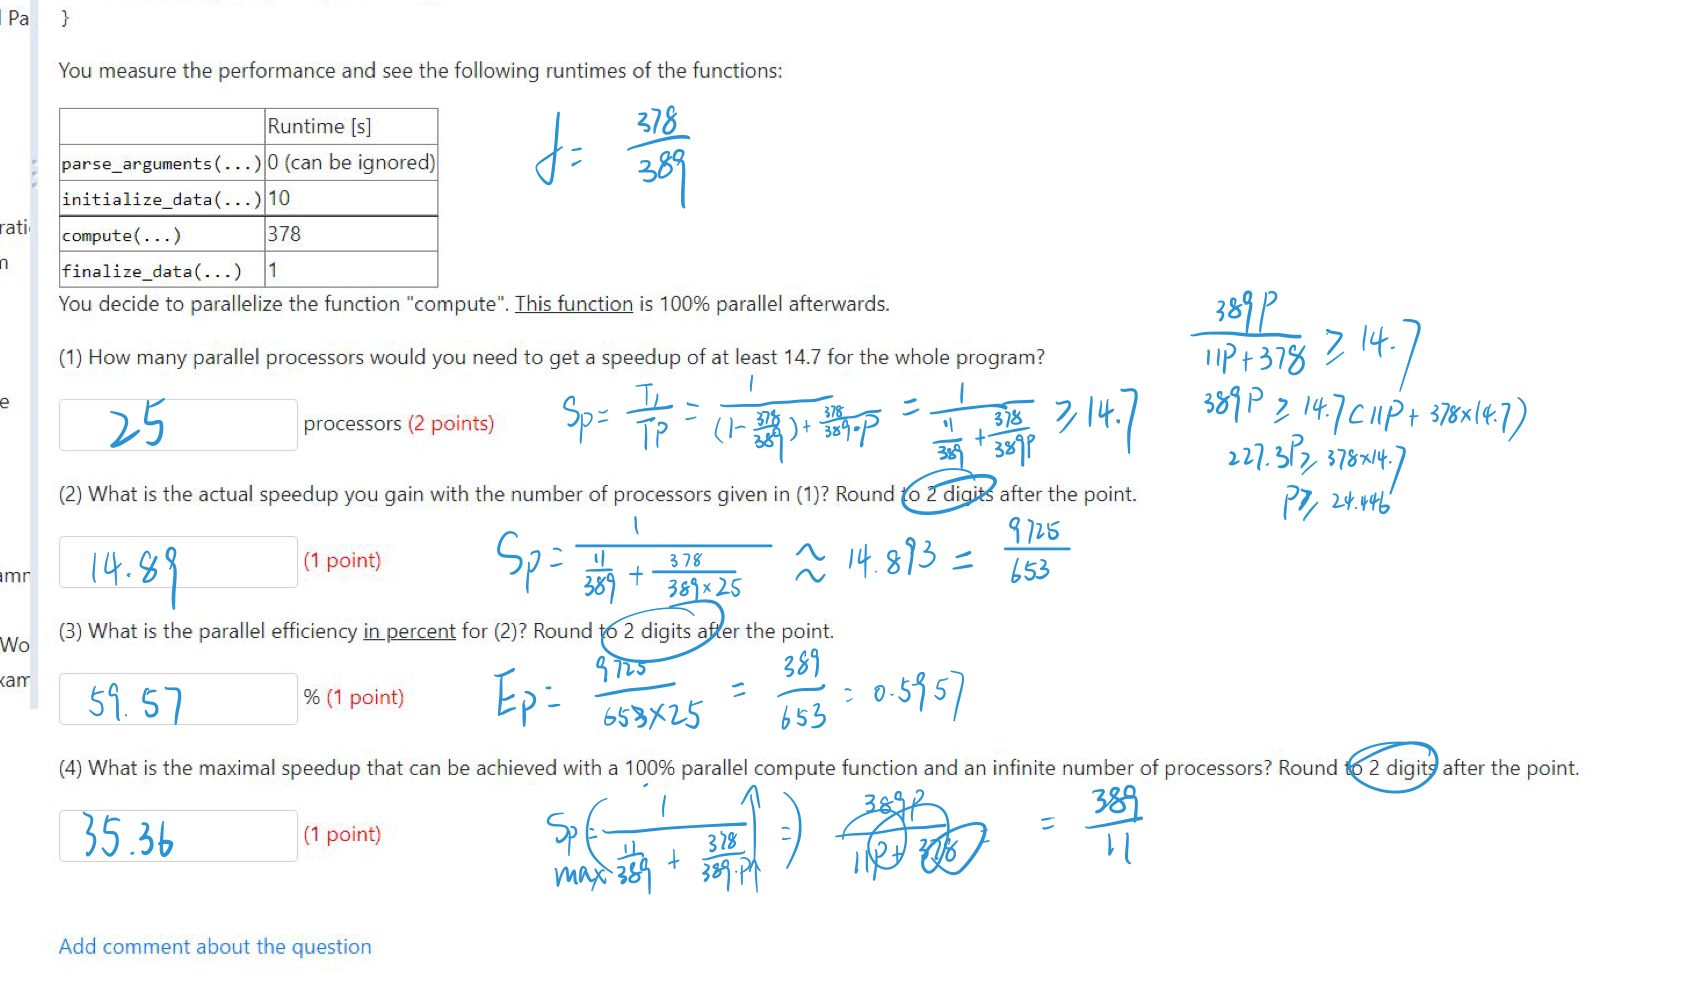 Pa
}
You measure the performance and see the following runtimes of the functions:
Runtime [s]
parse_arguments(...) 0 (can be ignored)
initialize_data(...) 10
compute(...) 378
finalize_data(...) 1
f = 378/389
You decide to parallelize the function "compute". This function is 100% parallel afterwards.
(1) How many parallel processors would you need to get a speedup of at least 14.7 for the whole program?
25 processors (2 points)
Sp = T1/TP = 1/((1-378/389)+378/389·P) = 1/(11/389+378/389P) ≥ 14.7
389P/(11P+378) ≥ 14.7
389P ≥ 14.7(11P+378×14.7)
227.3P ≥ 378×14.7
P ≥ 24.446
(2) What is the actual speedup you gain with the number of processors given in (1)? Round to 2 digits after the point.
14.89 (1 point)
Sp = 1/(11/389+378/389×25) ≈ 14.893 = 9725/653
(3) What is the parallel efficiency in percent for (2)? Round to 2 digits after the point.
59.57 % (1 point)
Ep = 9725/653×25 = 389/653 = 0.5957
(4) What is the maximal speedup that can be achieved with a 100% parallel compute function and an infinite number of processors? Round to 2 digits after the point.
35.36 (1 point)
Sp max (= 1/(11/389+378/389·P↑) ↑ =) 389P/(11P+378) = 389/11
Add comment about the question
rati
e
amr
Wo
xam